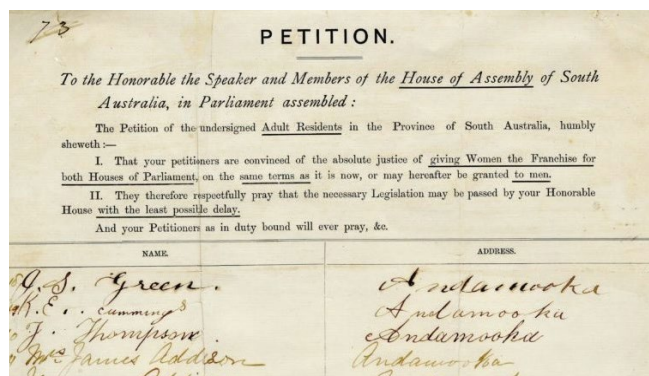 73
PETITION.
To the Honorable the Speaker and Members of the House of Assembly of South
Australia, in Parliament assembled :
The Petition of the undersigned Adult Residents in the Province of South Australia, humbly
sheweth :—
I. That your petitioners are convinced of the absolute justice of giving Women the Franchise for
both Houses of Parliament, on the same terms as it is now, or may hereafter be granted to men.
II. They therefore respectfully pray that the necessary Legislation may be passed by your Honorable
House with the least possible delay.
And your Petitioners as in duty bound will ever pray, &c.
NAME. ADDRESS.
G. S. Green. Andamooka
K. E. Cummings Andamooka
J. Thompson. Andamooka
Mrs James Addison Andamooka